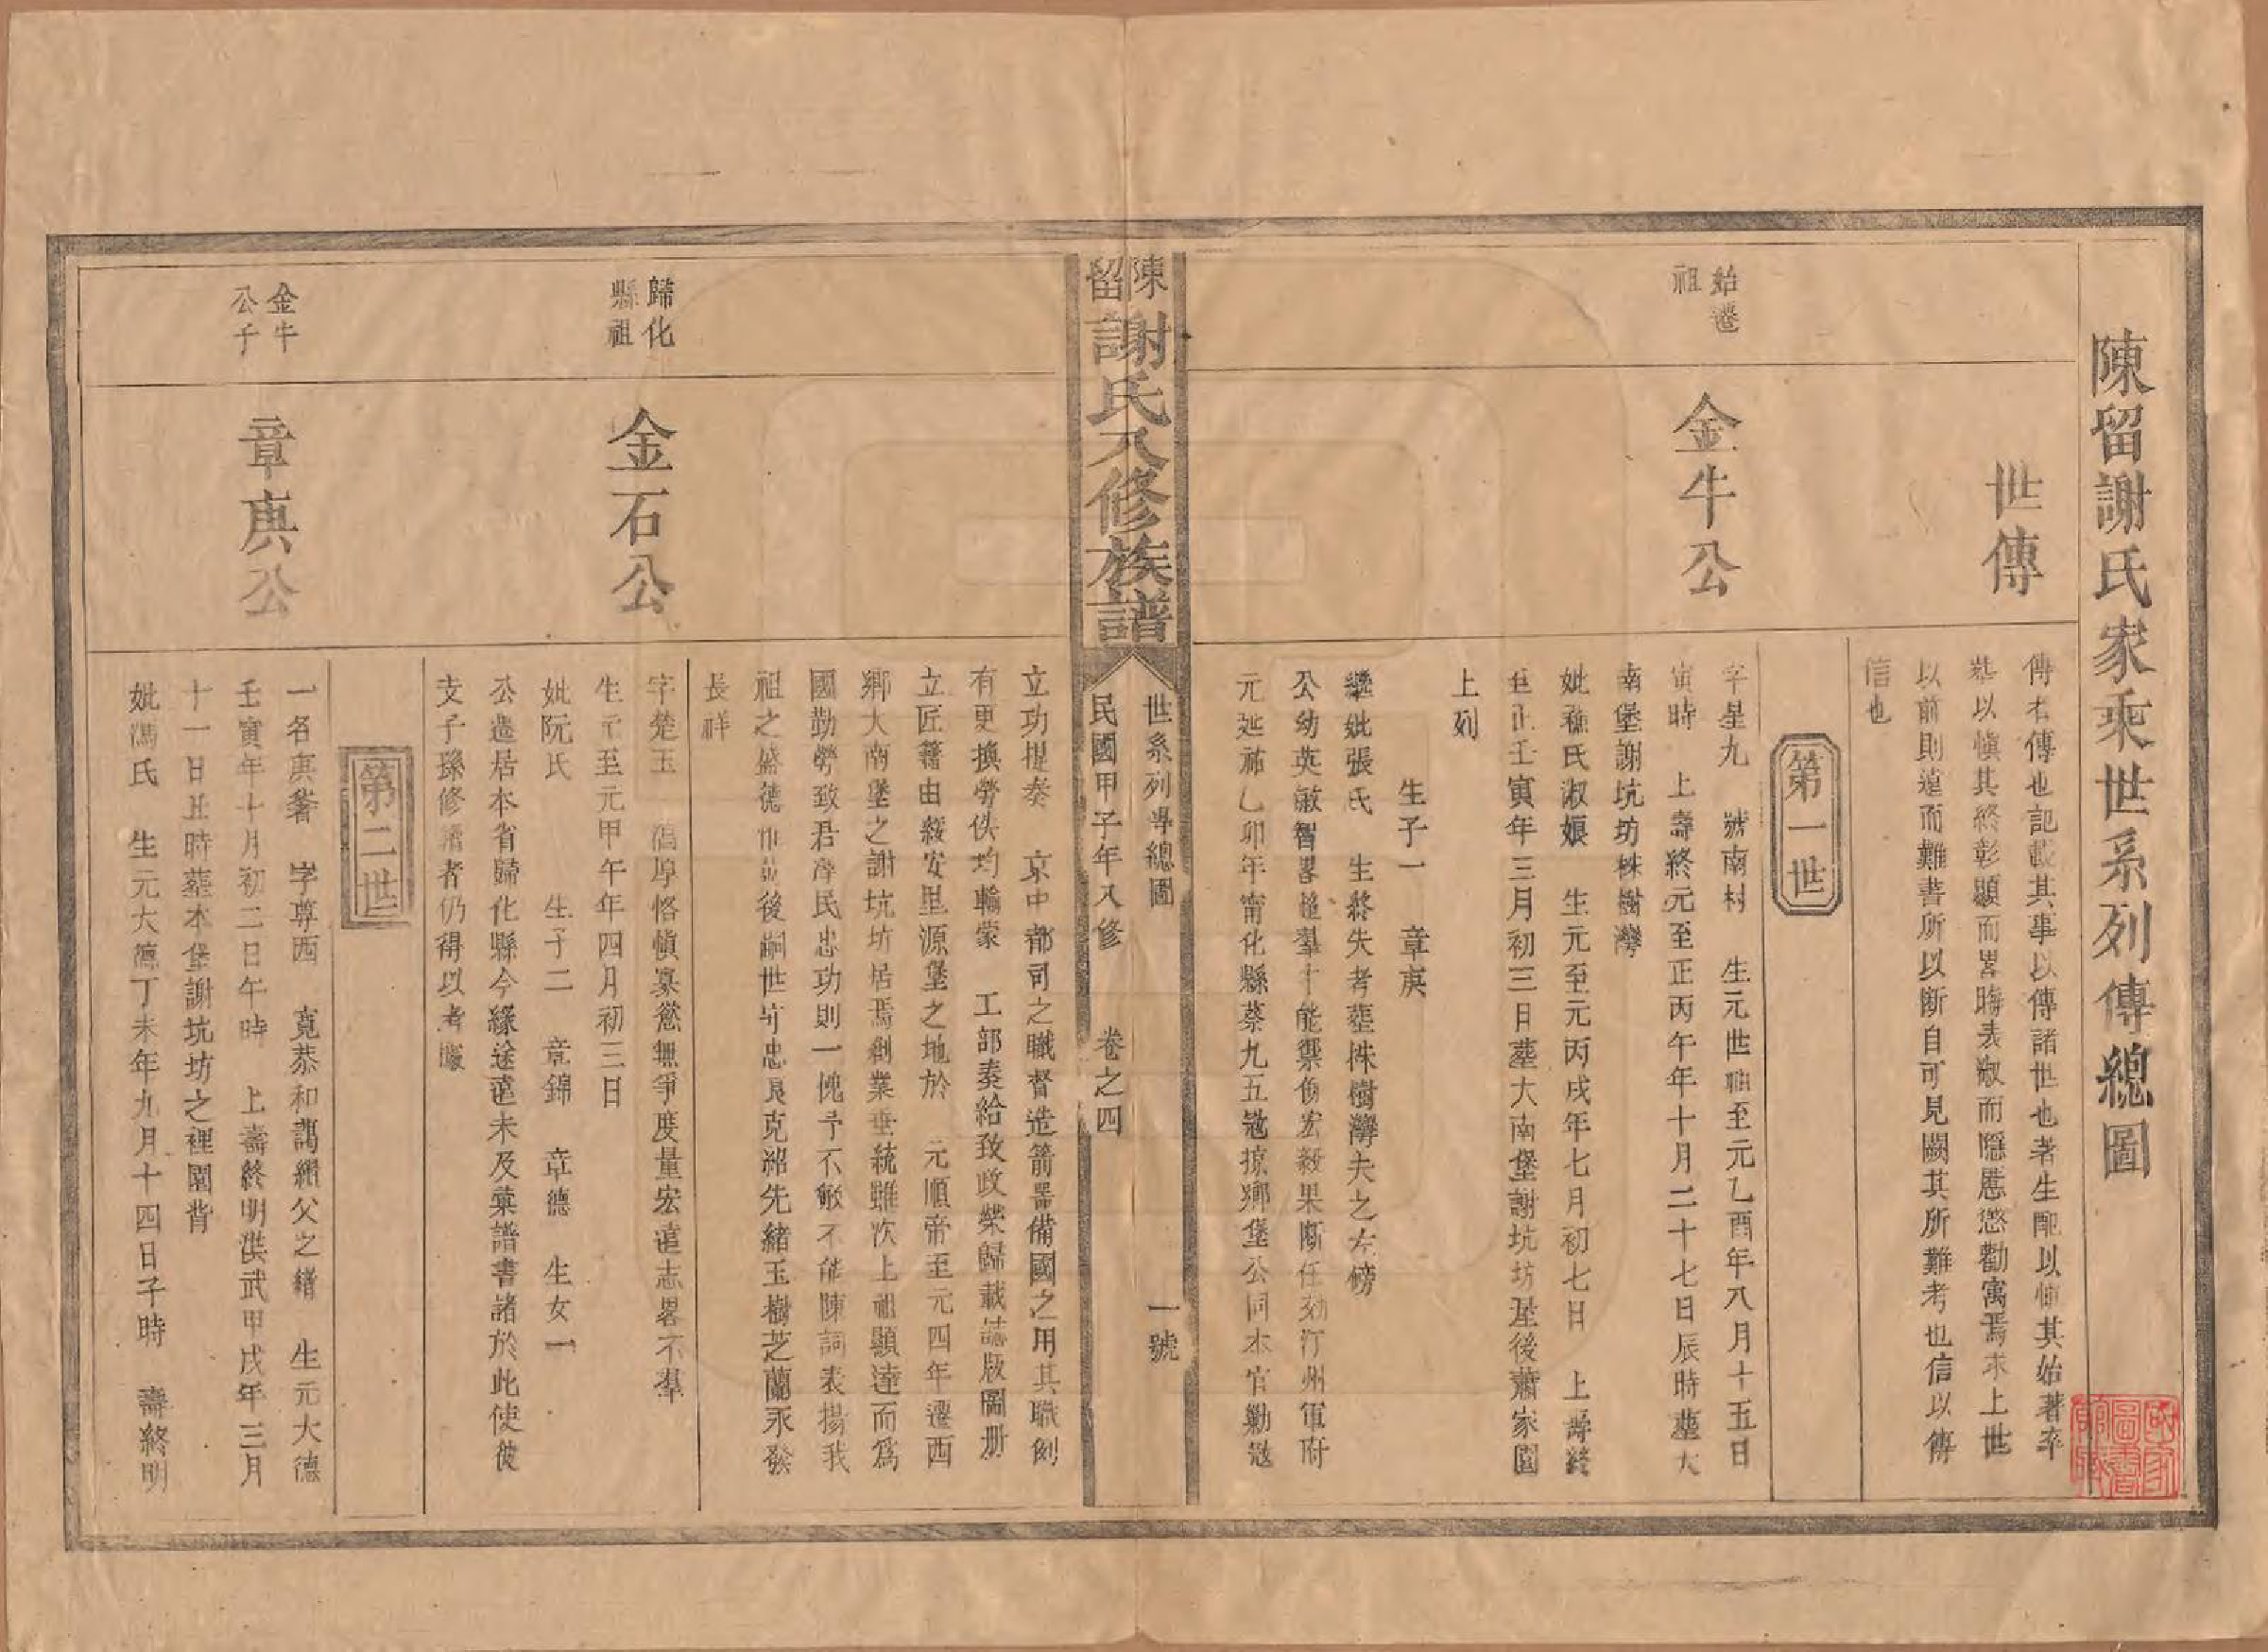 陳留謝氏家乘世系列傳總圖
世傳
傳者傳也記載其事以傳諸世也著生配以慎其始著卒
葬以慎其終彰顯而畧晦表淑而隱慝懲勸寓焉求上世
以前則遠而難書所以斷自可見闕其所難考也信以傳
信也
第一世
始遷
祖
金牛公
字星九 號南村 生元世祖至元乙酉年八月十五日
寅時 上壽終元至正丙午年十月二十七日辰時塟大
南堡謝坑坊株樹灣
妣孫氏淑娘 生元至元丙戌年七月初七日 上壽終
至正壬寅年三月初三日塟大南堡謝坑坊屋後蕭家園
上列
生子一 章庚
繼妣張氏 生終失考塟株樹灣夫之左傍
公幼英敏智畧超羣才能禦侮宏毅果斷任効汀州軍府
元延祐乙卯年甯化縣蔡九五寇掠鄉堡公同本官勦寇
陳留謝氏八修族譜
世系列傳總圖 一號
民國甲子年八修 卷之四
立功提奏 京中都司之職督造箭器備國之用其職例
有更換勞佚均輸蒙 工部奏給致政榮歸載誌版圖册
立匠籍由綏安里源堡之地於 元順帝至元四年遷西
鄉大南堡之謝坑坊居焉創業垂統雖次上祖顯達而爲
國勤勞致君澤民忠功則一愧予不敏不能陳詞表揚我
祖之盛德惟冀後嗣世守忠良克紹先緒玉樹芝蘭永發
長祥
歸化
縣祖
金石公
字楚玉 倡厚恪慎氣慾無爭度量宏遠志畧不羣
生元至元甲午年四月初三日
妣阮氏 生子二 章錦 章德 生女一
公遷居本省歸化縣今緣途遠未及彙譜書諸於此使彼
支子孫修譜者仍得以考據
第二世
金牛
公子
章庚公
一名庚發 字尊西 寬恭和藹纘父之緒 生元大德
壬寅年十月初二日午時 上壽終明洪武甲戌年三月
十一日丑時塟本堡謝坑坊之裡園背
妣馮氏 生元大德丁未年九月十四日子時 壽終明